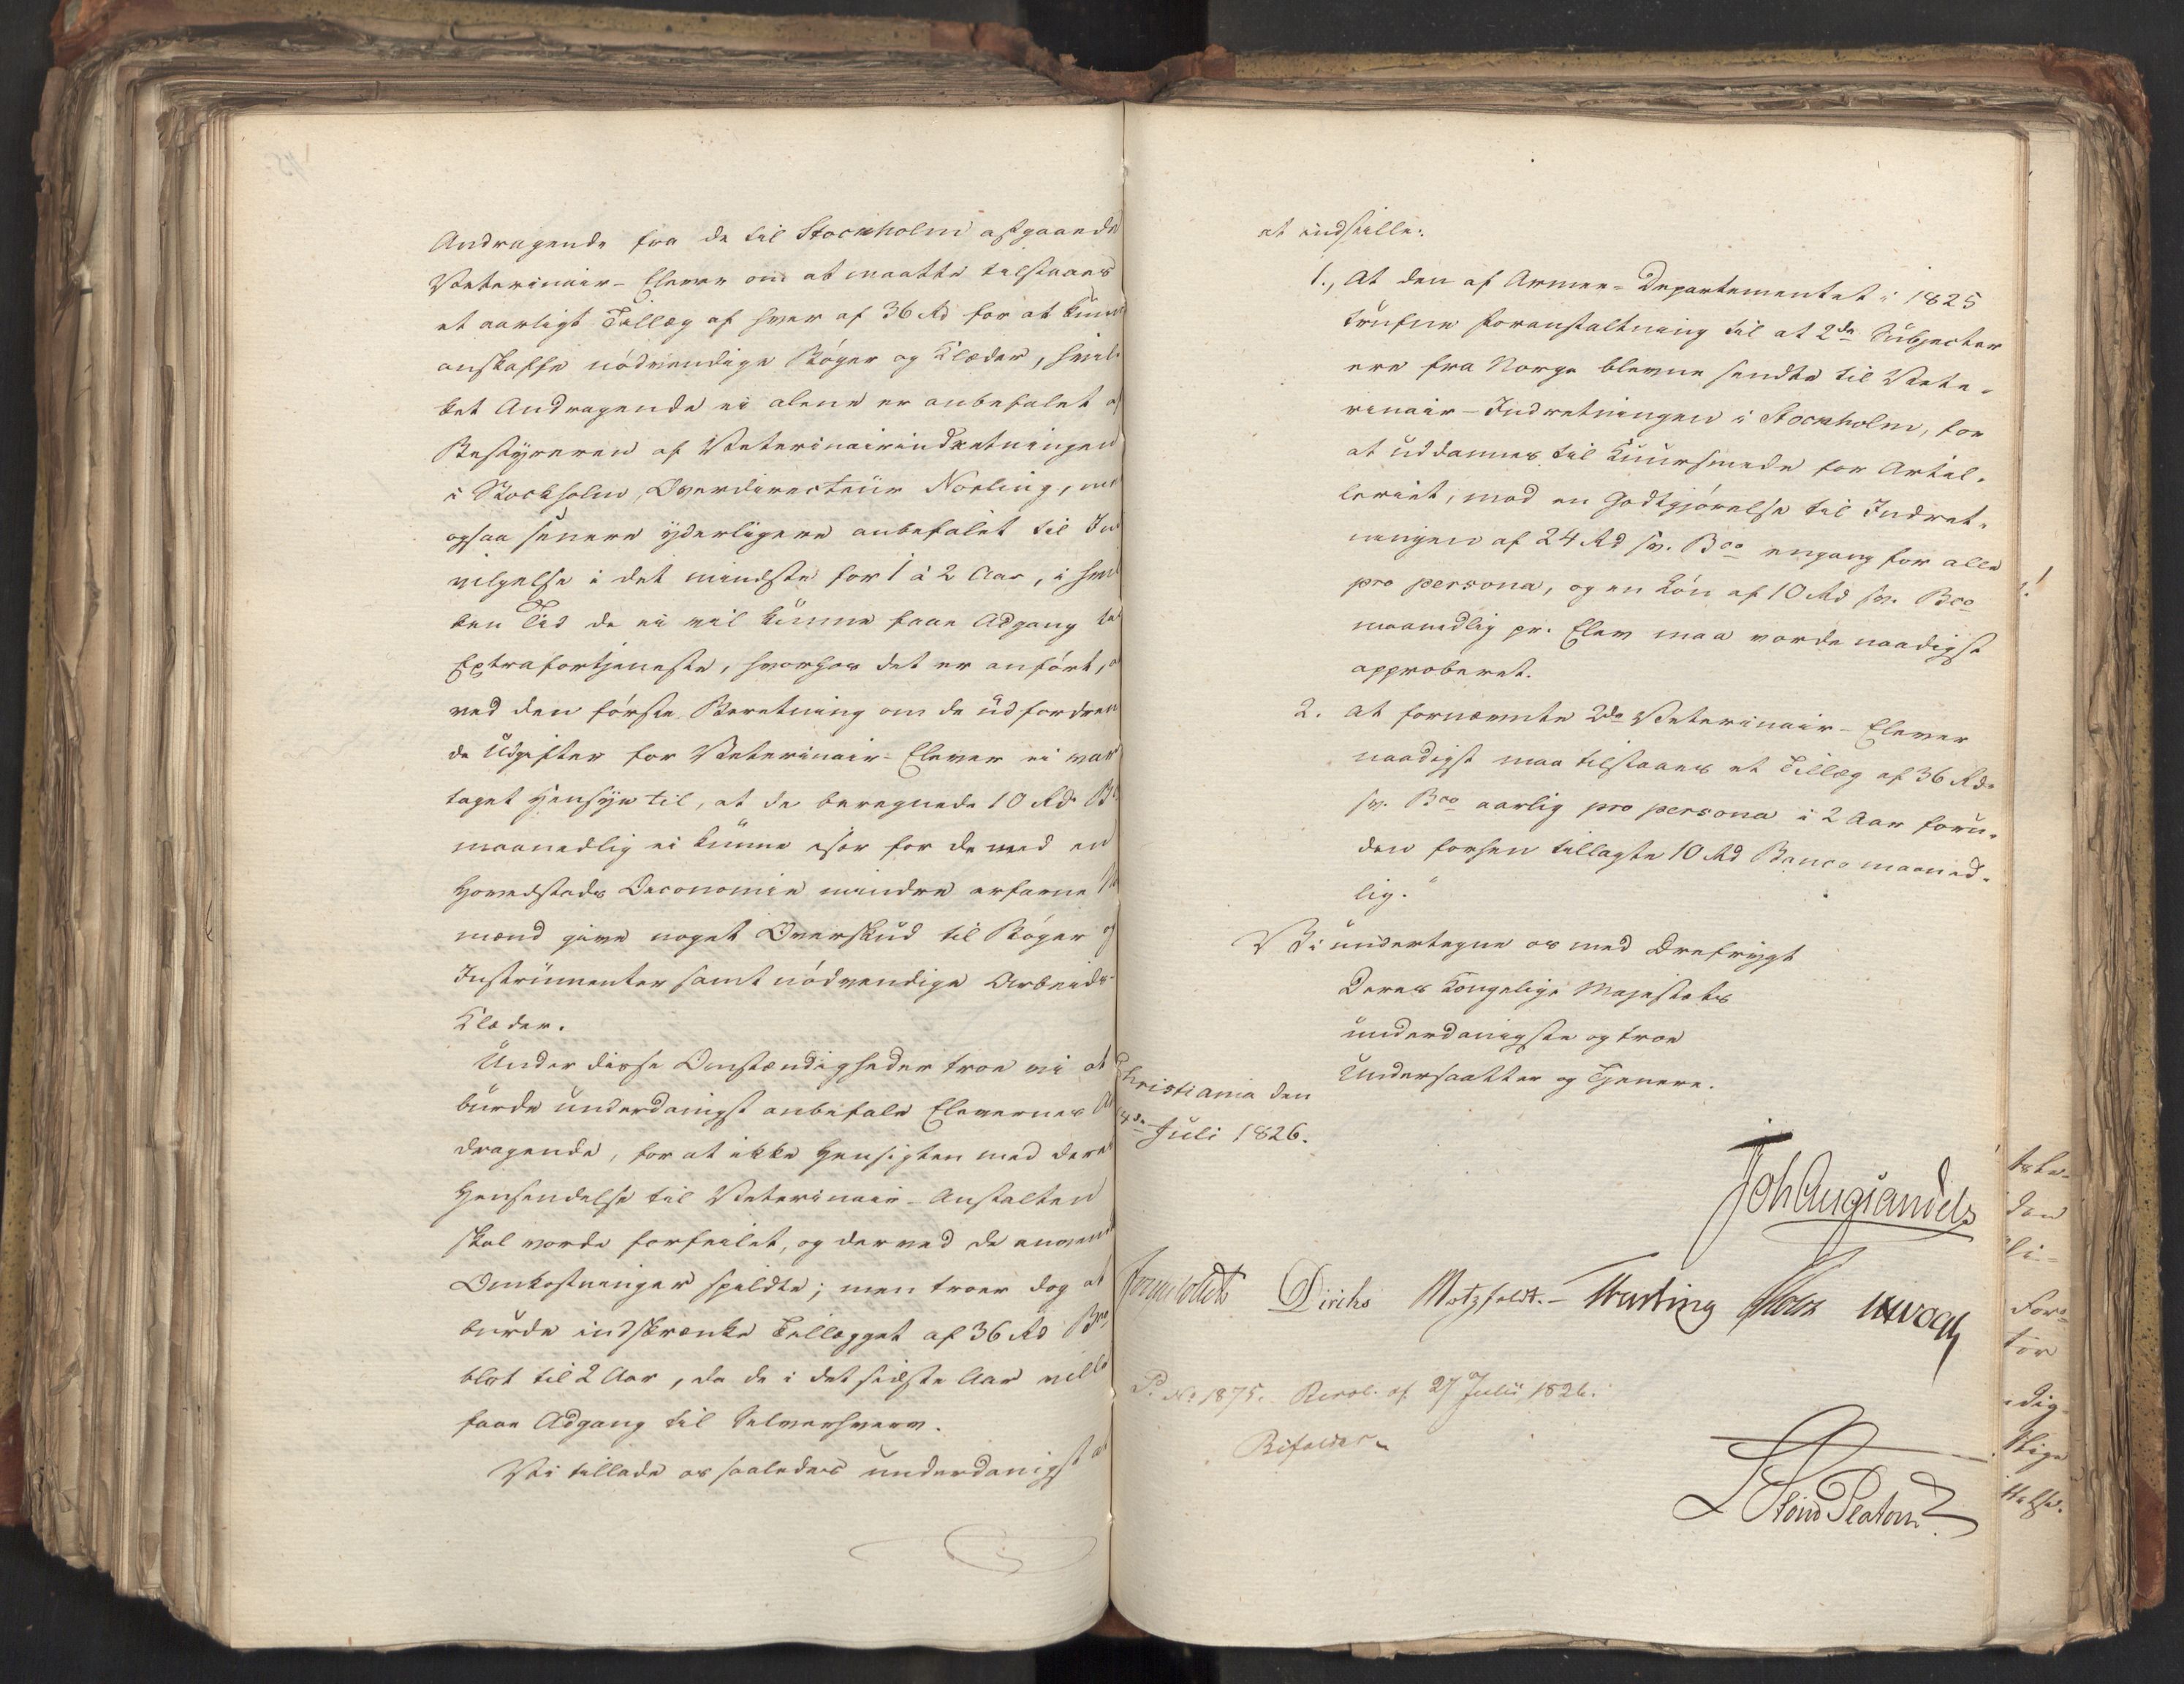 Andragende fra de til Stockholm afgaaende
Veterinair-Elever om at maatte tilstaaes
et aarligt Tillæg af hver af 36 Rd for at kunne
anskaffe nödvendige Böger og Klæder, hvil-
ket Andragende ei alene er anbefalet af
Bestyreren af Veterinairindretningen
i Stockholm, Overdirecteur Norling, men
ogsaa senere yderligere anbefalet til Ind
vilgelse i det mindste for 1 à 2 Aar, i hvil
ken Tid de ei vil kunne faae Adgang til
Extrafortjeneste, hvorhos det er anfört, at
ved den förste Beretning om de udfordren
de Udgifter for Veterinair-Elever ei var
taget Hensyn til, at de beregnede 10 Rd. Bco
maanedlig ei kunne især for de med en
Hovedstads Oeconomie mindre erfarne
mænd give noget Overskud til Böger og
Instrumenter samt nödvendige Arbeids-
Klæder.
Under disse Omstændigheder troe vi at
burde underdanigst anbefale Elevernes An
dragende, for at ikke Hensigten med deres
Hensendelse til Veterinair-Anstalten
skal vorde forfeilet, og derved de anvendte
Omkostninger spildte; men troer dog at
burde indskrænke Tillægget af 36 Rd Bco
blot til 2 Aar, da de i det sidste Aar ville
faae Adgang til Selverhverv.
Vi tillade os saaledes underdanigst at
at indstille:
1., At den af Armee-Departementet i 1825
trufne Foranstaltning til at 2de Subjecter
ere fra Norge blevne sendte til Vete-
rinair-Indretningen i Stockholm, for
at uddannes til Kuursmede for Artil-
leriet, mod en Godtgjörelse til Indret-
ningen af 24 Rd sv. Bco engang for alle
pro persona, og en Lön af 10 Rd sv. Bco
maanedlig pr. Elev maa vorde naadigst
approberet.
2. at fornævnte 2de Veterinair-Elever
naadigst maa tilstaaes et Tillæg af 36 Rd.
sv. Bco aarlig pro persona i 2 Aar foru-
den forhen tillagte 10 Rd Banco maaned-
lig."
Vi undertegne os med Ærefrygt
Deres Kongelige Majestæts
underdanigste og troe
Undersaatter og Tjenere.
Christiania den
4de Juli 1826.
Joh Aug Sandels
Jonas Collett Diriks Motzfeldt. Treschow Holst
P. No 1875. Resol. af 27 Juli 1826.
Bifaldes
Löwenskiold